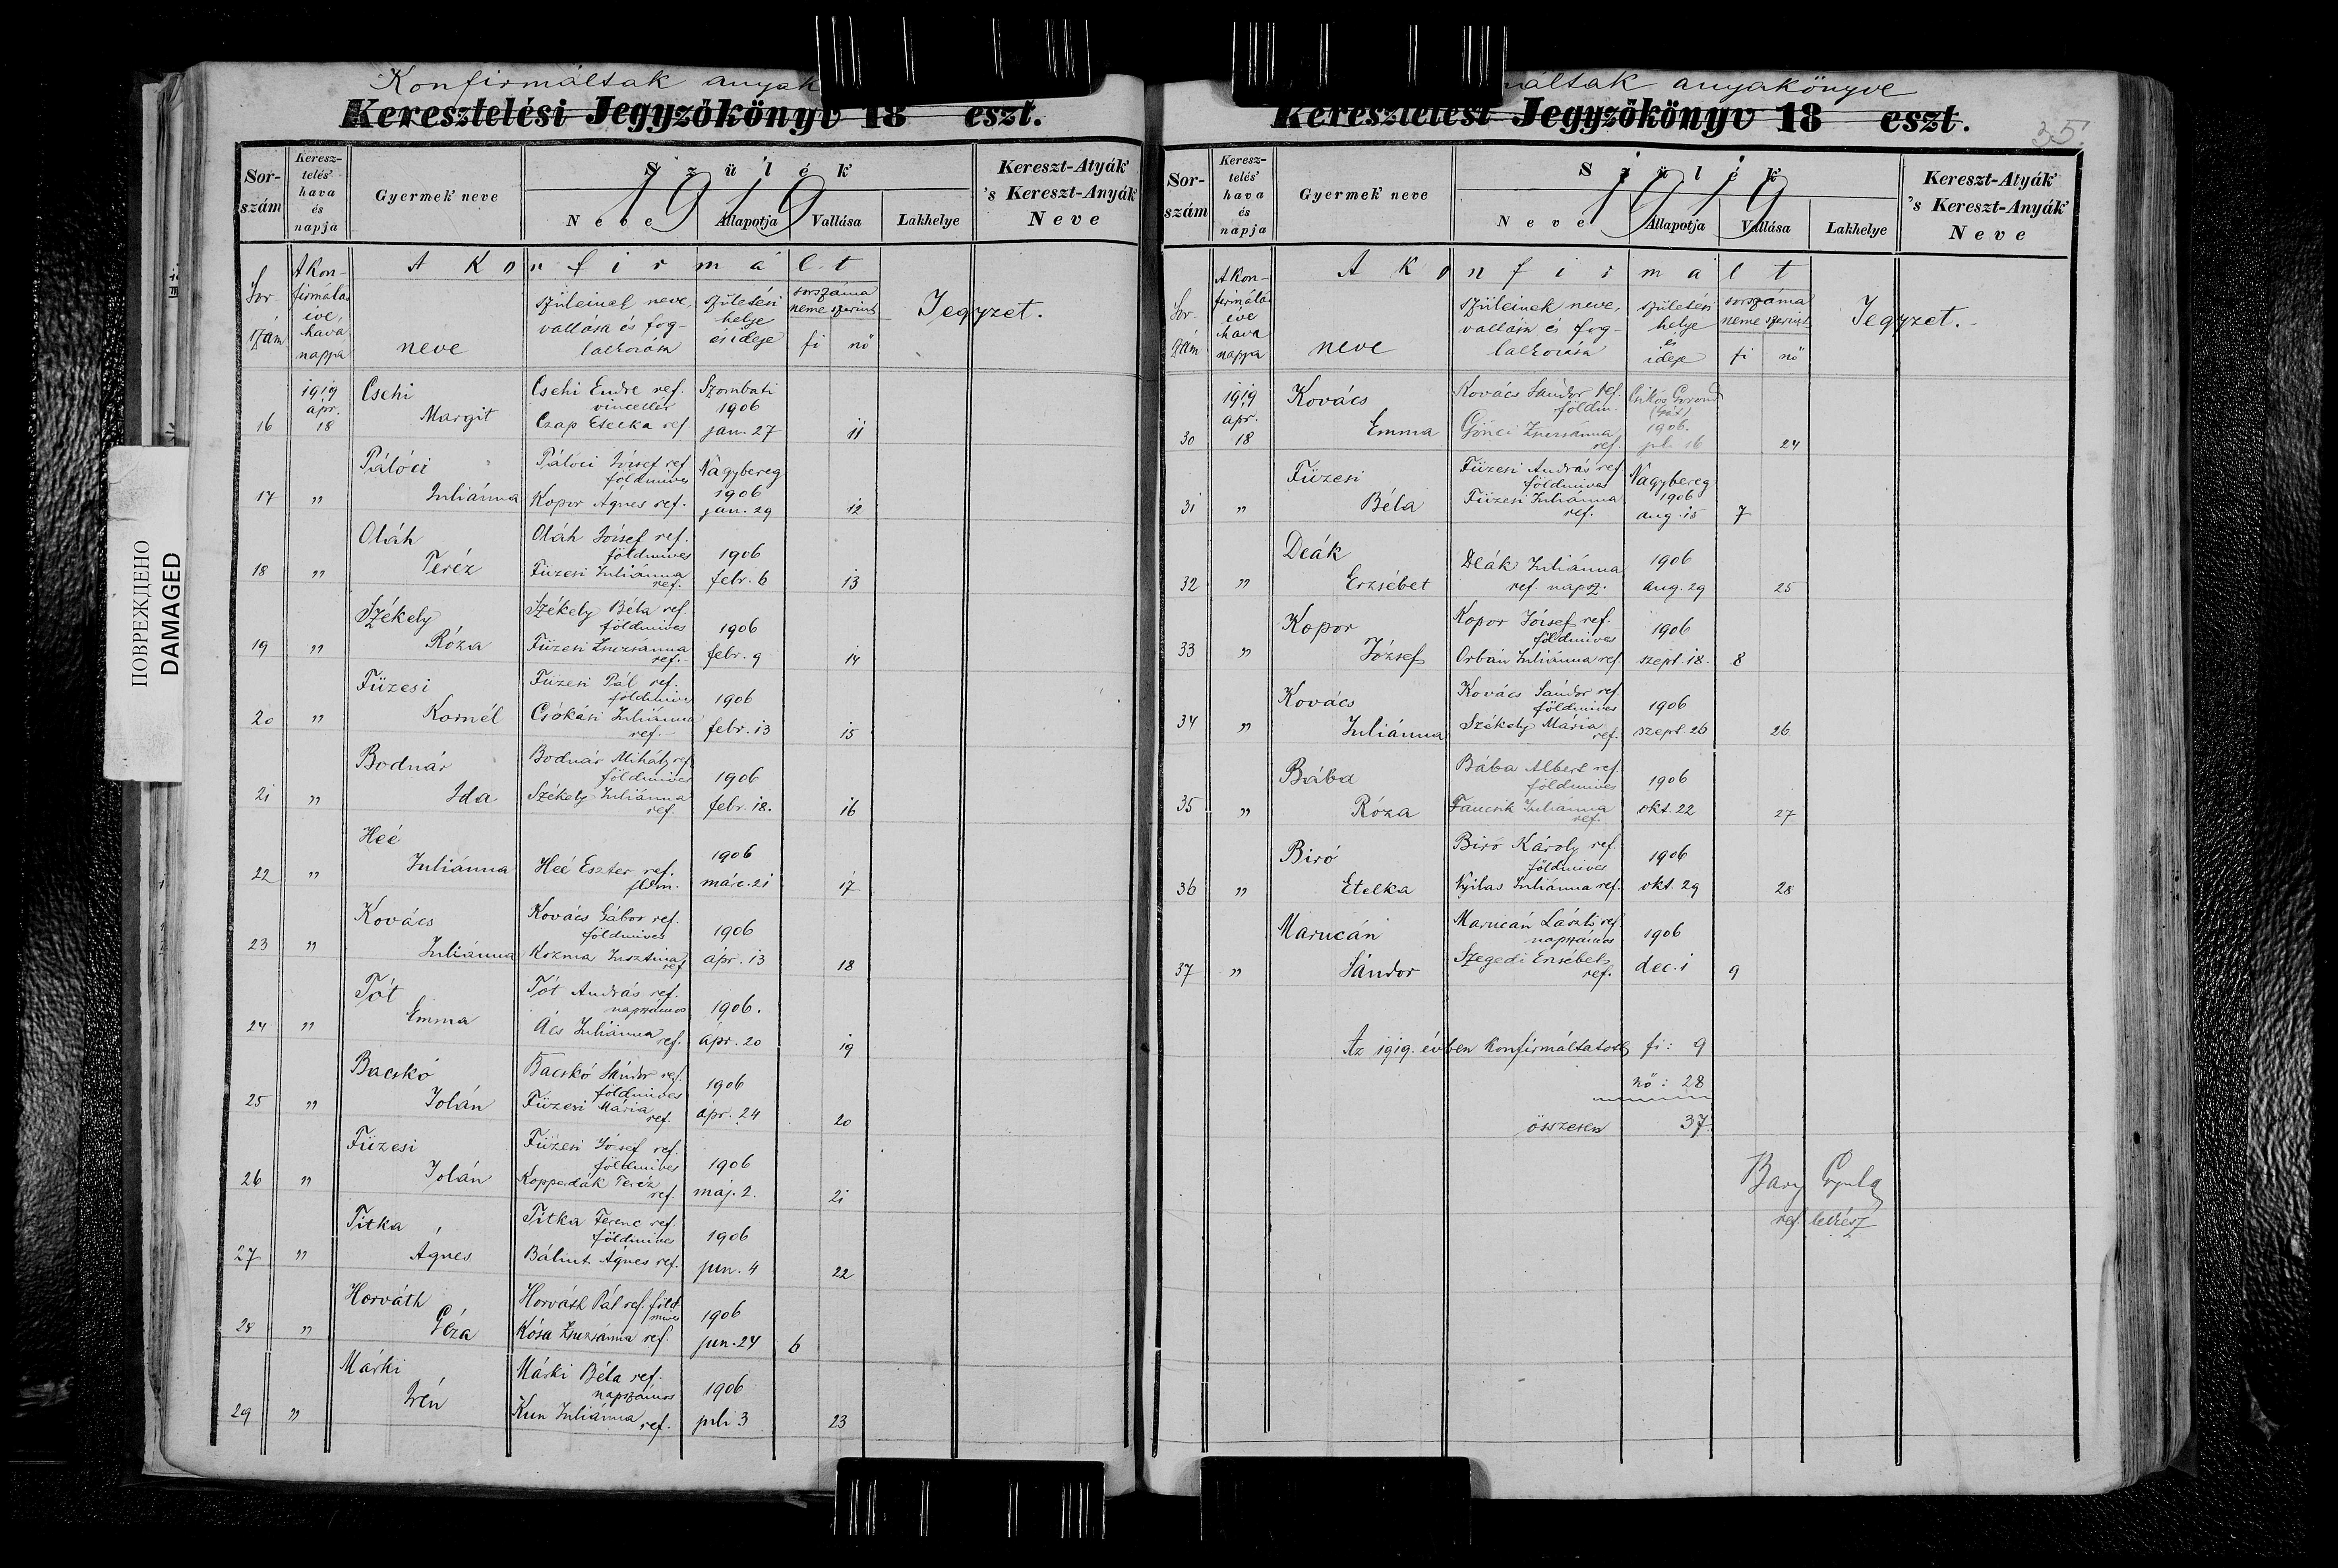 Konfirmáltak anyak
Keresztelési Jegyzőkönyv 18 eszt.
1919
Sor-
szám
Keresz-
telés'
hava
és
napja
Gyermek neve
Szülék
Neve
Állapotja
Vallása
Lakhelye
Kereszt-Atyák
's Kereszt-Anyák
Neve
A Konfirmált
Sor
szám
A kon-
firmálás
éve,
hava
napja
neve
szüleinek neve,
vallása és fog-
lalkozása
születési
helye
és ideje
sorszáma
neme szerint
fi nő
Jegyzet.
16
1919
ápr.
18
Csehi
Margit
Csehi Endre ref.
vincellér
Czap Etelka ref
Szombati
1906
jan. 27
11
17
"
Pálóci
Juliánna
Pálóci József ref
földmives
Kopor Ágnes ref.
Nagybereg
1906
jan. 29
12
18
"
Oláh
Teréz
Oláh József ref.
földmives
Füzesi Juliánna
ref.
1906
febr. 6
13
19
"
Székely
Róza
Székely Béla ref.
földmives
Füzesi Zsuzsánna
ref.
1906
febr. 9
14
20
"
Füzesi
Kornél
Füzesi Pál ref.
földmives
Csókási Juliánna
ref.
1906
febr. 13
15
21
"
Bodnár
Ida
Bodnár Mihály ref.
földmives
Székely Juliánna
ref.
1906
febr. 18.
16
22
"
Heé
Juliánna
Heé Eszter ref.
1906
márc. 21
17
23
"
Kovács
Juliánna
Kovács Gábor ref.
földmives
Kozma Jusztina
ref
1906
ápr. 13
18
24
"
Tót
Emma
Tót András ref.
napszámos
Ács Juliánna
ref.
1906.
ápr. 20
19
25
"
Bacskó
Jolán
Bacskó Sándor ref.
földmives
Füzesi Mária
ref.
1906
ápr. 24
20
26
"
Füzesi
Jolán
Füzesi József ref.
földmives
Koppadák Teréz
ref.
1906
máj. 2.
21
27
"
Titka
Ágnes
Titka Ferenc ref.
földmives
Bálint Ágnes ref.
1906
jun. 4
22
28
"
Horváth
Géza
Horváth Pál ref. föld
mives
Kósa Zsuzsánna ref.
1906
jun. 24
6
29
"
Márki
Irén
Márki Béla ref.
napszámos
Kun Juliánna ref.
1906
juli 3
23
máltak anyakönyve
Keresztelési Jegyzőkönyv 18 eszt.
35.
1919
Sor-
szám
Keresz-
telés'
hava
és
napja
Gyermek neve
Szülék
Neve
Állapotja
Vallása
Lakhelye
Kereszt-Atyák
's Kereszt-Anyák
Neve
A Konfirmalt
Sor-
szám
A kon-
firmálás
éve
hava
napja
neve
szüleinek neve,
vallása és fog-
lalkozása
születési
helye
és
ideje
sorszáma
neme szerint
fi nő
Jegyzet.
30
1919
apr.
18
Kovács
Emma
Kovács Sándor ref.
földm.
Gönci Zsuzsánna
ref.
Csikós Gorond
(Gát)
1906.
jul. 16
24
31
"
Füzesi
Béla
Füzesi András ref
földmives
Füzesi Juliánna
ref.
Nagybereg
1906
aug. 15
7
32
"
Deák
Erzsébet
Deák Juliánna
ref. napsz.
1906
aug. 29
25
33
"
Kopor
József
Kopor József ref.
földmives
Orbán Juliánna ref
1906
szept. 18.
8
34
"
Kovács
Juliánna
Kovács Sándor ref
földmives
Székely Mária
ref.
1906
szept. 26
26
35
"
Bába
Róza
Bába Albert ref
földmives
Fancsik Juliánna
ref.
1906
okt. 22
27
36
"
Biró
Etelka
Biró Károly ref
földmives
Nyilas Juliánna ref.
1906
okt. 29
28
37
"
Marucán
Sándor
Marucán László ref
napszámos
Szegedi Erzsébet
ref.
1906
dec. 1
9
Az 1919. évben konfirmáltatott fi: 9
nő: 28
összesen 37.
Bary Gyula
ref. lelkész
ПОВРЕЖДЕНО
DAMAGED